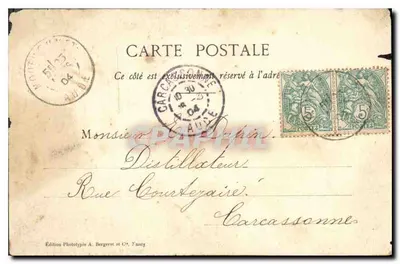 CARTE POSTALE
Ce côté est exclusivement réservé à l'adre
CARCASSONNE
10 30
04
AUDE
04
AUDE
5 5
Monsieur
Distillateur
Rue Courtejaire
Carcassonne
Édition Phototypie A. Bergeret et Cie, Nancy